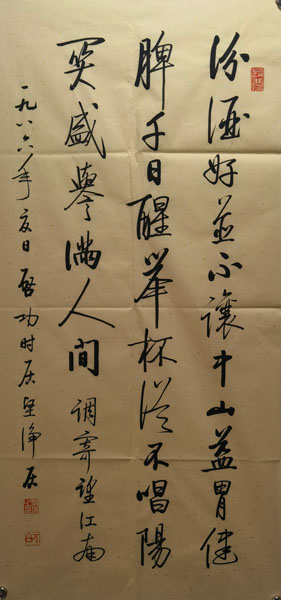 汾酒好並不讓中山益胃健
脾千日醒舉杯從不唱陽
關盛譽滿人間 調寄望江南
一九八六年夏日 啓功時居堅淨居